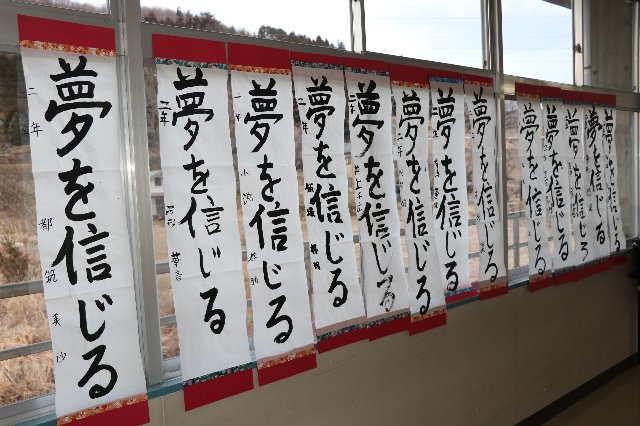 夢を信じる
二年 都筑美沙
夢を信じる
二年
夢を信じる
二年
夢を信じる
二年
夢を信じる
夢を信じる
夢を信じる
夢を信じる
夢を信じる
夢を信じる
夢を信じる
夢を信じる
夢を信じる